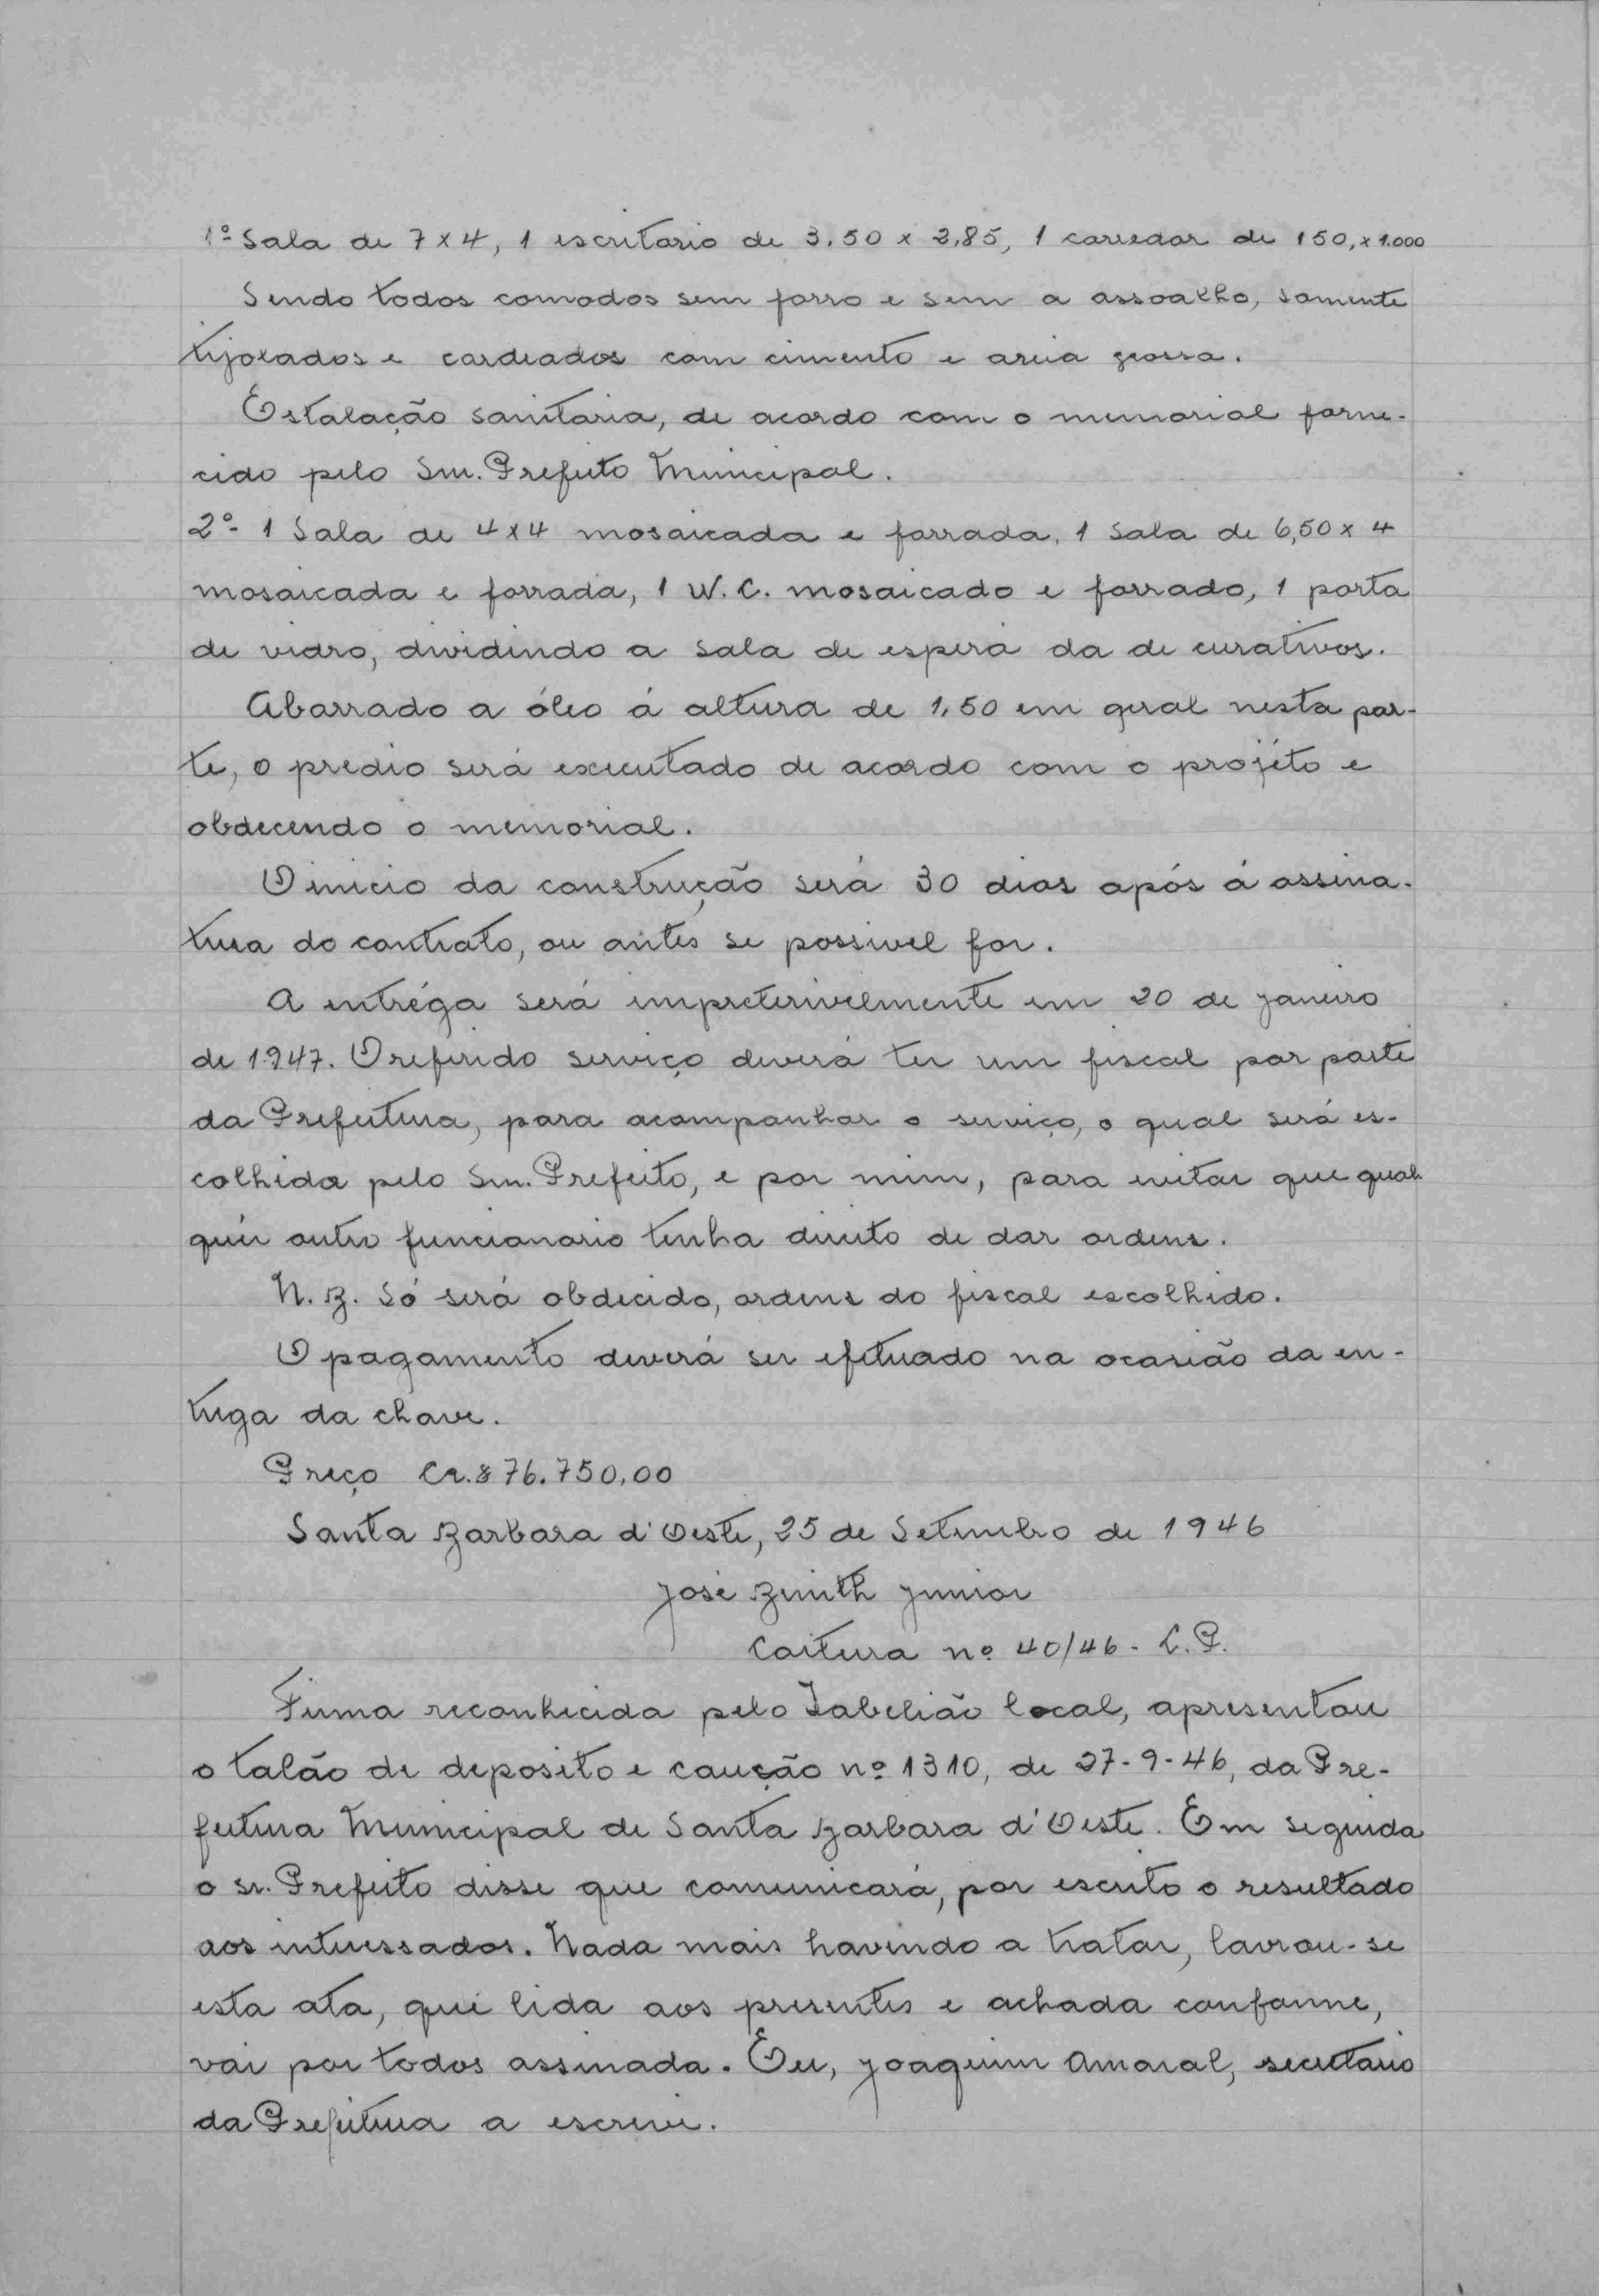 1º Sala de 7 x 4, 1 escritorio de 3.50 x 2,85, 1 corredor de 150, x 1.000
Sendo todos comodos sem forro e sem a assoalho, somente
tijolados e cordeados com cimento e areia grossa.
Estalação sanitaria, de acordo com o memorial forne-
cido pelo Snr. Prefeito Municipal.
2º- 1 Sala de 4x4 mosaicada e forrada, 1 Sala de 6,50 x 4
mosaicada e forrada, 1 W.C. mosaicado e forrado, 1 porta
de vidro, dividindo a sala de espera da de curativos.
Abarrado a óleo á altura de 1,50 em geral nesta par-
te, o predio será executado de acordo com o projéto e
obdecendo o memorial.
O inicio da construção será 30 dias após á assina-
tura do contrato, ou antes se possivel for.
A entréga será impreterivelmente em 20 de janeiro
de 1947. O referido serviço deverá ter um fiscal por parte
da Prefeitura, para acompanhar o serviço, o qual será es-
colhido pelo Snr. Prefeito, e por mim, para evitar que qual-
quer outro funcionario tenha direito de dar ordens.
N.B. Só será obdecido, ordens do fiscal escolhido.
O pagamento deverá ser efetuado na ocasião da en-
trega da chave.
Preço Cr.$ 76.750,00
Santa Barbara d'Oeste, 25 de Setembro de 1946
José Zenith Junior
Carteira nº 40/46 - L.P.
Firma reconhecida pelo Tabelião local, apresentou
o talão de deposito e caução nº 1310, de 27-9-46, da Pre-
feitura Municipal de Santa Barbara d'Oeste. Em seguida
o sr. Prefeito disse que comunicará, por escrito o resultado
aos interessados. Nada mais havendo a tratar, lavrou-se
esta ata, que lida aos presentes e achada conforme,
vai por todos assinada. Eu, Joaquim Amaral, secretario
da Prefeitura a escrevi.